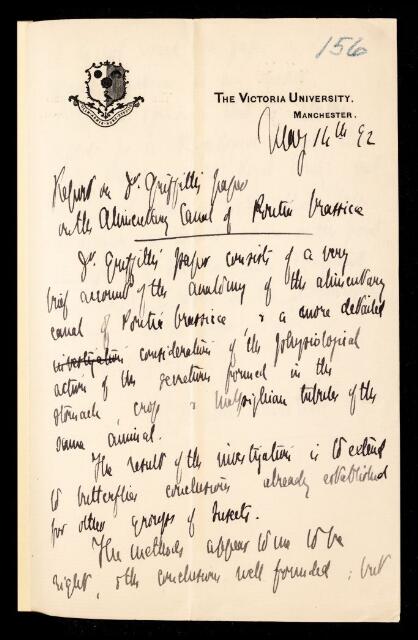 156
THE VICTORIA UNIVERSITY.
MANCHESTER.
May 14th 92
Report on Dr. Griffiths paper
on the Alimentary Canal of Pontia brassica
Dr Griffiths paper consists of a very
brief account of the anatomy of the alimentary
canal of Pontia brassica & a more detailed
investigation consideration of the physiological
action of the secretions formed in the
stomach, crop & malpighian tubules of the
same animal.
The result of the investigation is to extend
to butterflies conclusions already established
for other groups of Insects.
The methods appear to me to be
right, & the conclusions well founded; but